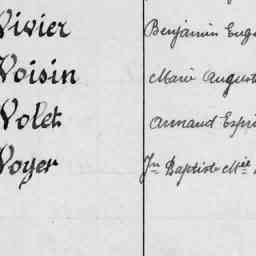 Vivier Benjamin Eug
Voisin Marie August
Volet Armand Espri
Voyer Jn Baptiste Mce